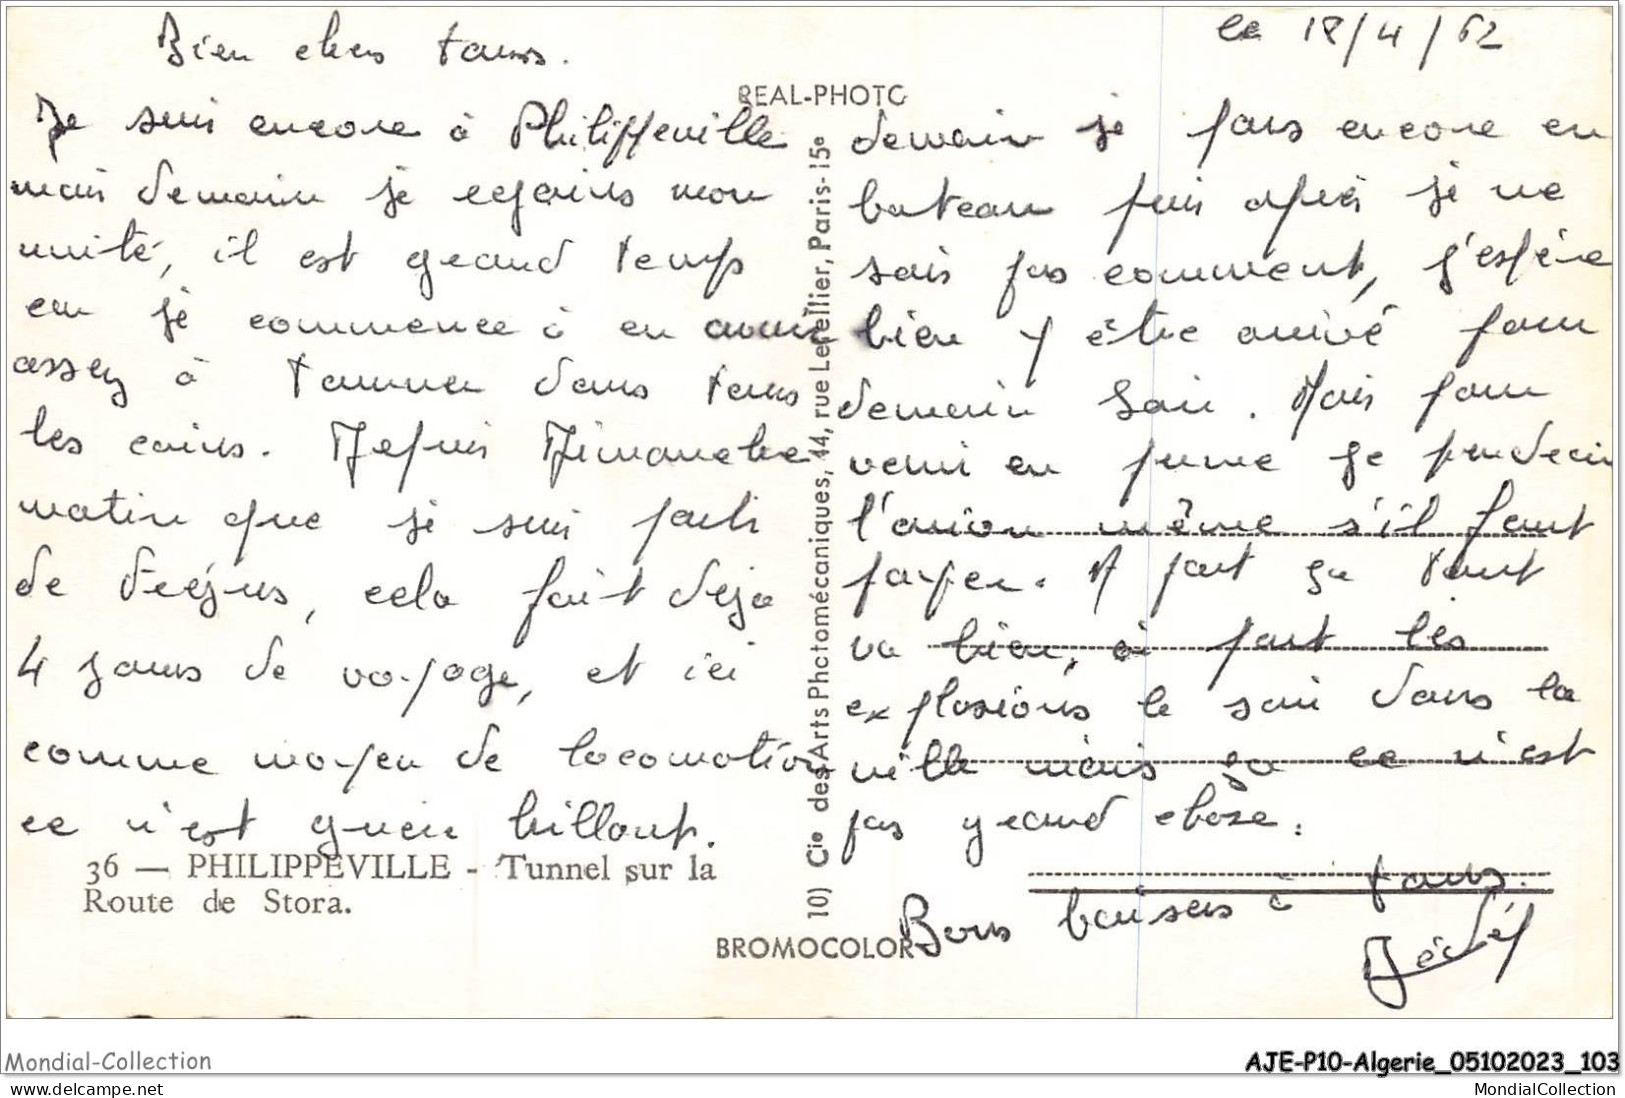 le 18/4/62
Bien chers tous.
Je suis encore à Philippeville
mais demain je rejoins mon
unité, il est grand temps
car je commence à en avoir
assez à tourner dans tous
les coins. Depuis Dimanche
matin que je suis parti
de Fréjus, cela fait déja
4 jours de voyage, et ici
comme moyen de locomotion
ce n'est guère brillant.
36 — PHILIPPEVILLE - Tunnel sur la
Route de Stora.
REAL-PHOTO
10) Cie des Arts Photomécaniques, 44, rue Letellier, Paris-15e
BROMOCOLOR
demain je pars encore en
bateau puis après je ne
sais pas comment, j'espère
bien y être arrivé pour
demain soir. Mais pour
venir en perme je prendrai
l'avion même s'il faut
payer. A part ça tout
va bien, à part les
explosions le soir dans la
ville mais ça ce n'est
pas grand chose.
Bons baisers à tous.
Mondial-Collection
AJE-P10-Algerie_05102023_103
www.delcampe.net
MondialCollection